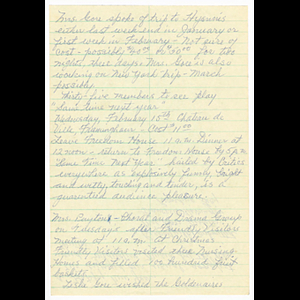 Mrs. Gore spoke of trip to Hyannis
either last weekend in January or
first week in February - Not sure of
Cost - possibly $40.00 or $50.00 for two
nights, three days. Mrs. Gore is also
working on New York trip - March
possibly.
Thirty-five members to see play
"Same time next year"
Wednesday, February 15th Chateau de
Ville, Framingham. Cost $11.00
Leave Freedom House 11 a.m. Dinner at
12 noon - return to Freedom House by 5 p.m.
Same Time Next Year hailed by Critics
everywhere as explosively funny, bright
and witty, touching and tender, is a
guaranteed audience pleasure.
Mrs. - Choral and Drama Group
on Tuesdays after Friendly Visitors
meeting at 11 a.m. At Christmas
Friendly Visitors visited three Nursing
Homes and filled one hundred fruit
baskets.
Gore the Goldenaires